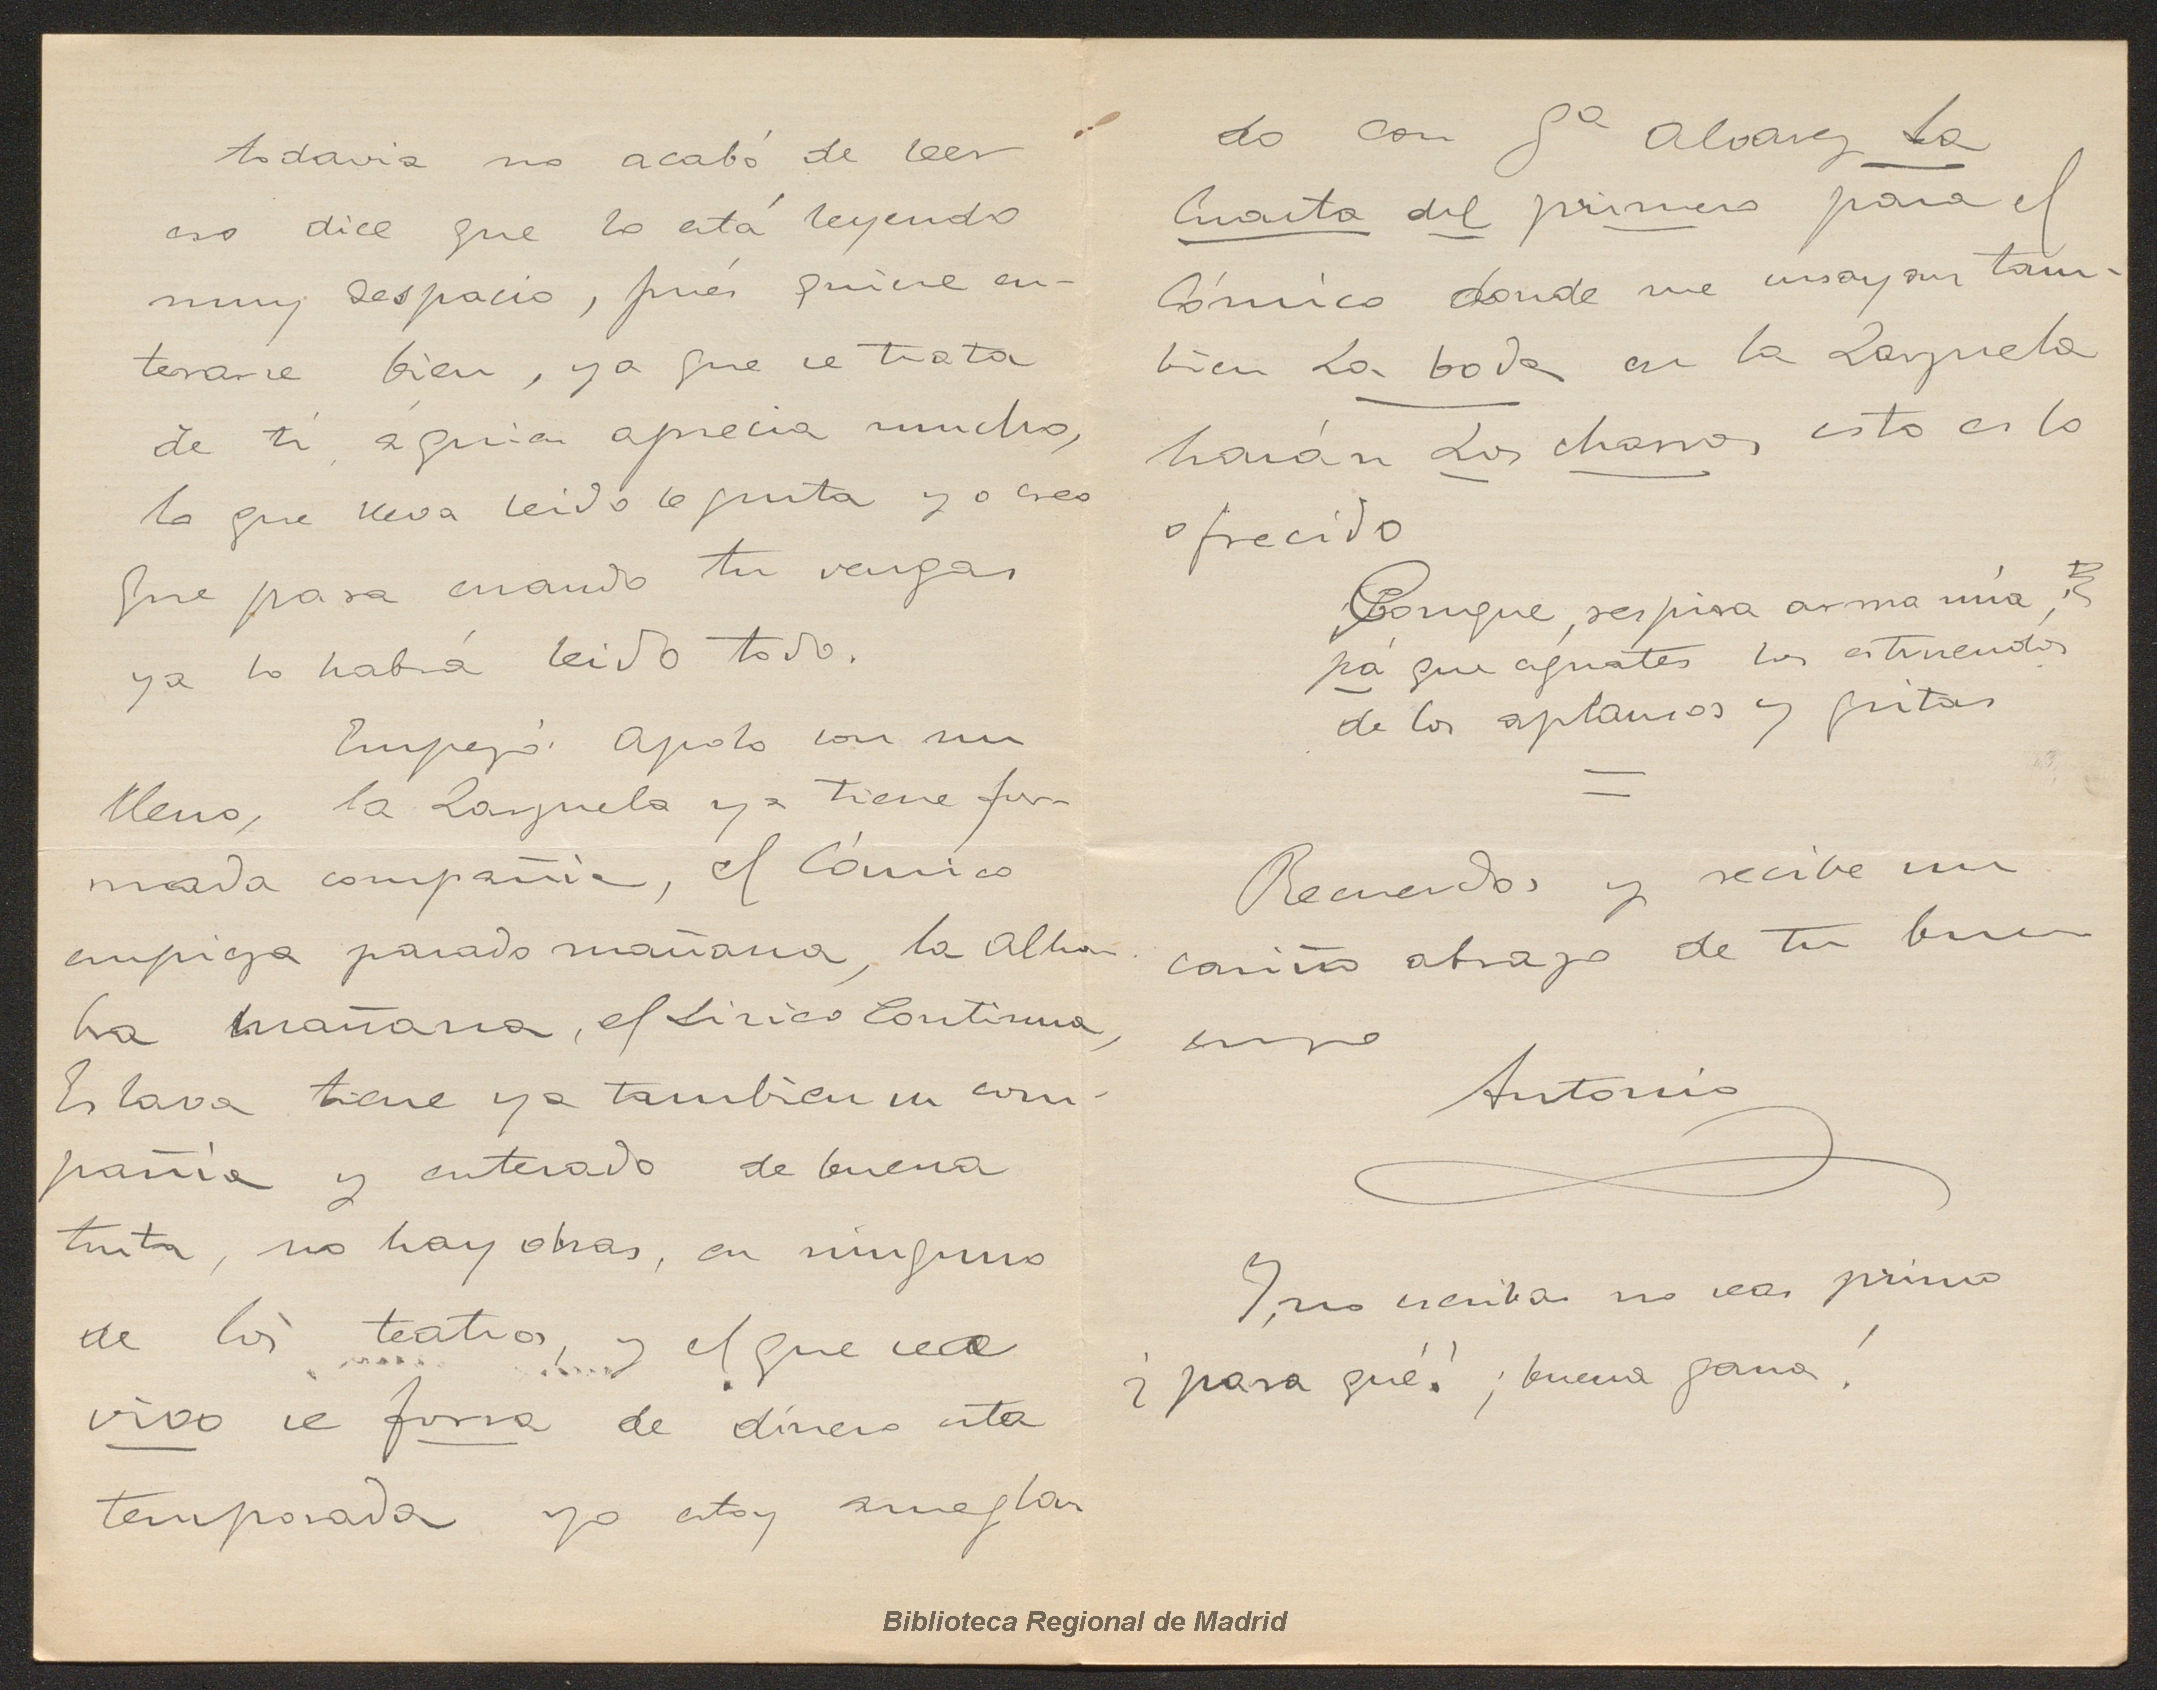 todavia no acabó de leer
eso dice que lo está leyendo
muy despacio, pués quiere en-
terarse bien, ya que se trata
de tí á quien aprecia mucho,
lo que lleva leido le gusta yo creo
que para cuando tu vengas
ya lo habrá leido todo.
Empezó Apolo con un
lleno, la Zarzuela ya tiene for-
mada compañia, el Cómico
empieza pasado mañana, la Alham-
bra mañana, el Lirico Continua,
Eslava tiene ya tambien su com-
pañia y enterado de buena
tinta, no hay obras, en ninguno
de los teatros, y el que sea
vivo se forra de dinero esta
temporada yo estoy arreglan
do con Gª Alvarez La
Cuarta del primero para el
Cómico donde me ensayan tam-
bien La boda en la Zarzuela
harán Los charros esto es lo
ofrecido
Conque, respira arma mia,
pá que aguates los estruendos
de los aplausos y gritas
=
Recuerdos y recibe un
cariño abrazo de tu buen
amigo
Antonio
Y, no escribas no seas primo
¿para qué! ¡buena gana!
Biblioteca Regional de Madrid